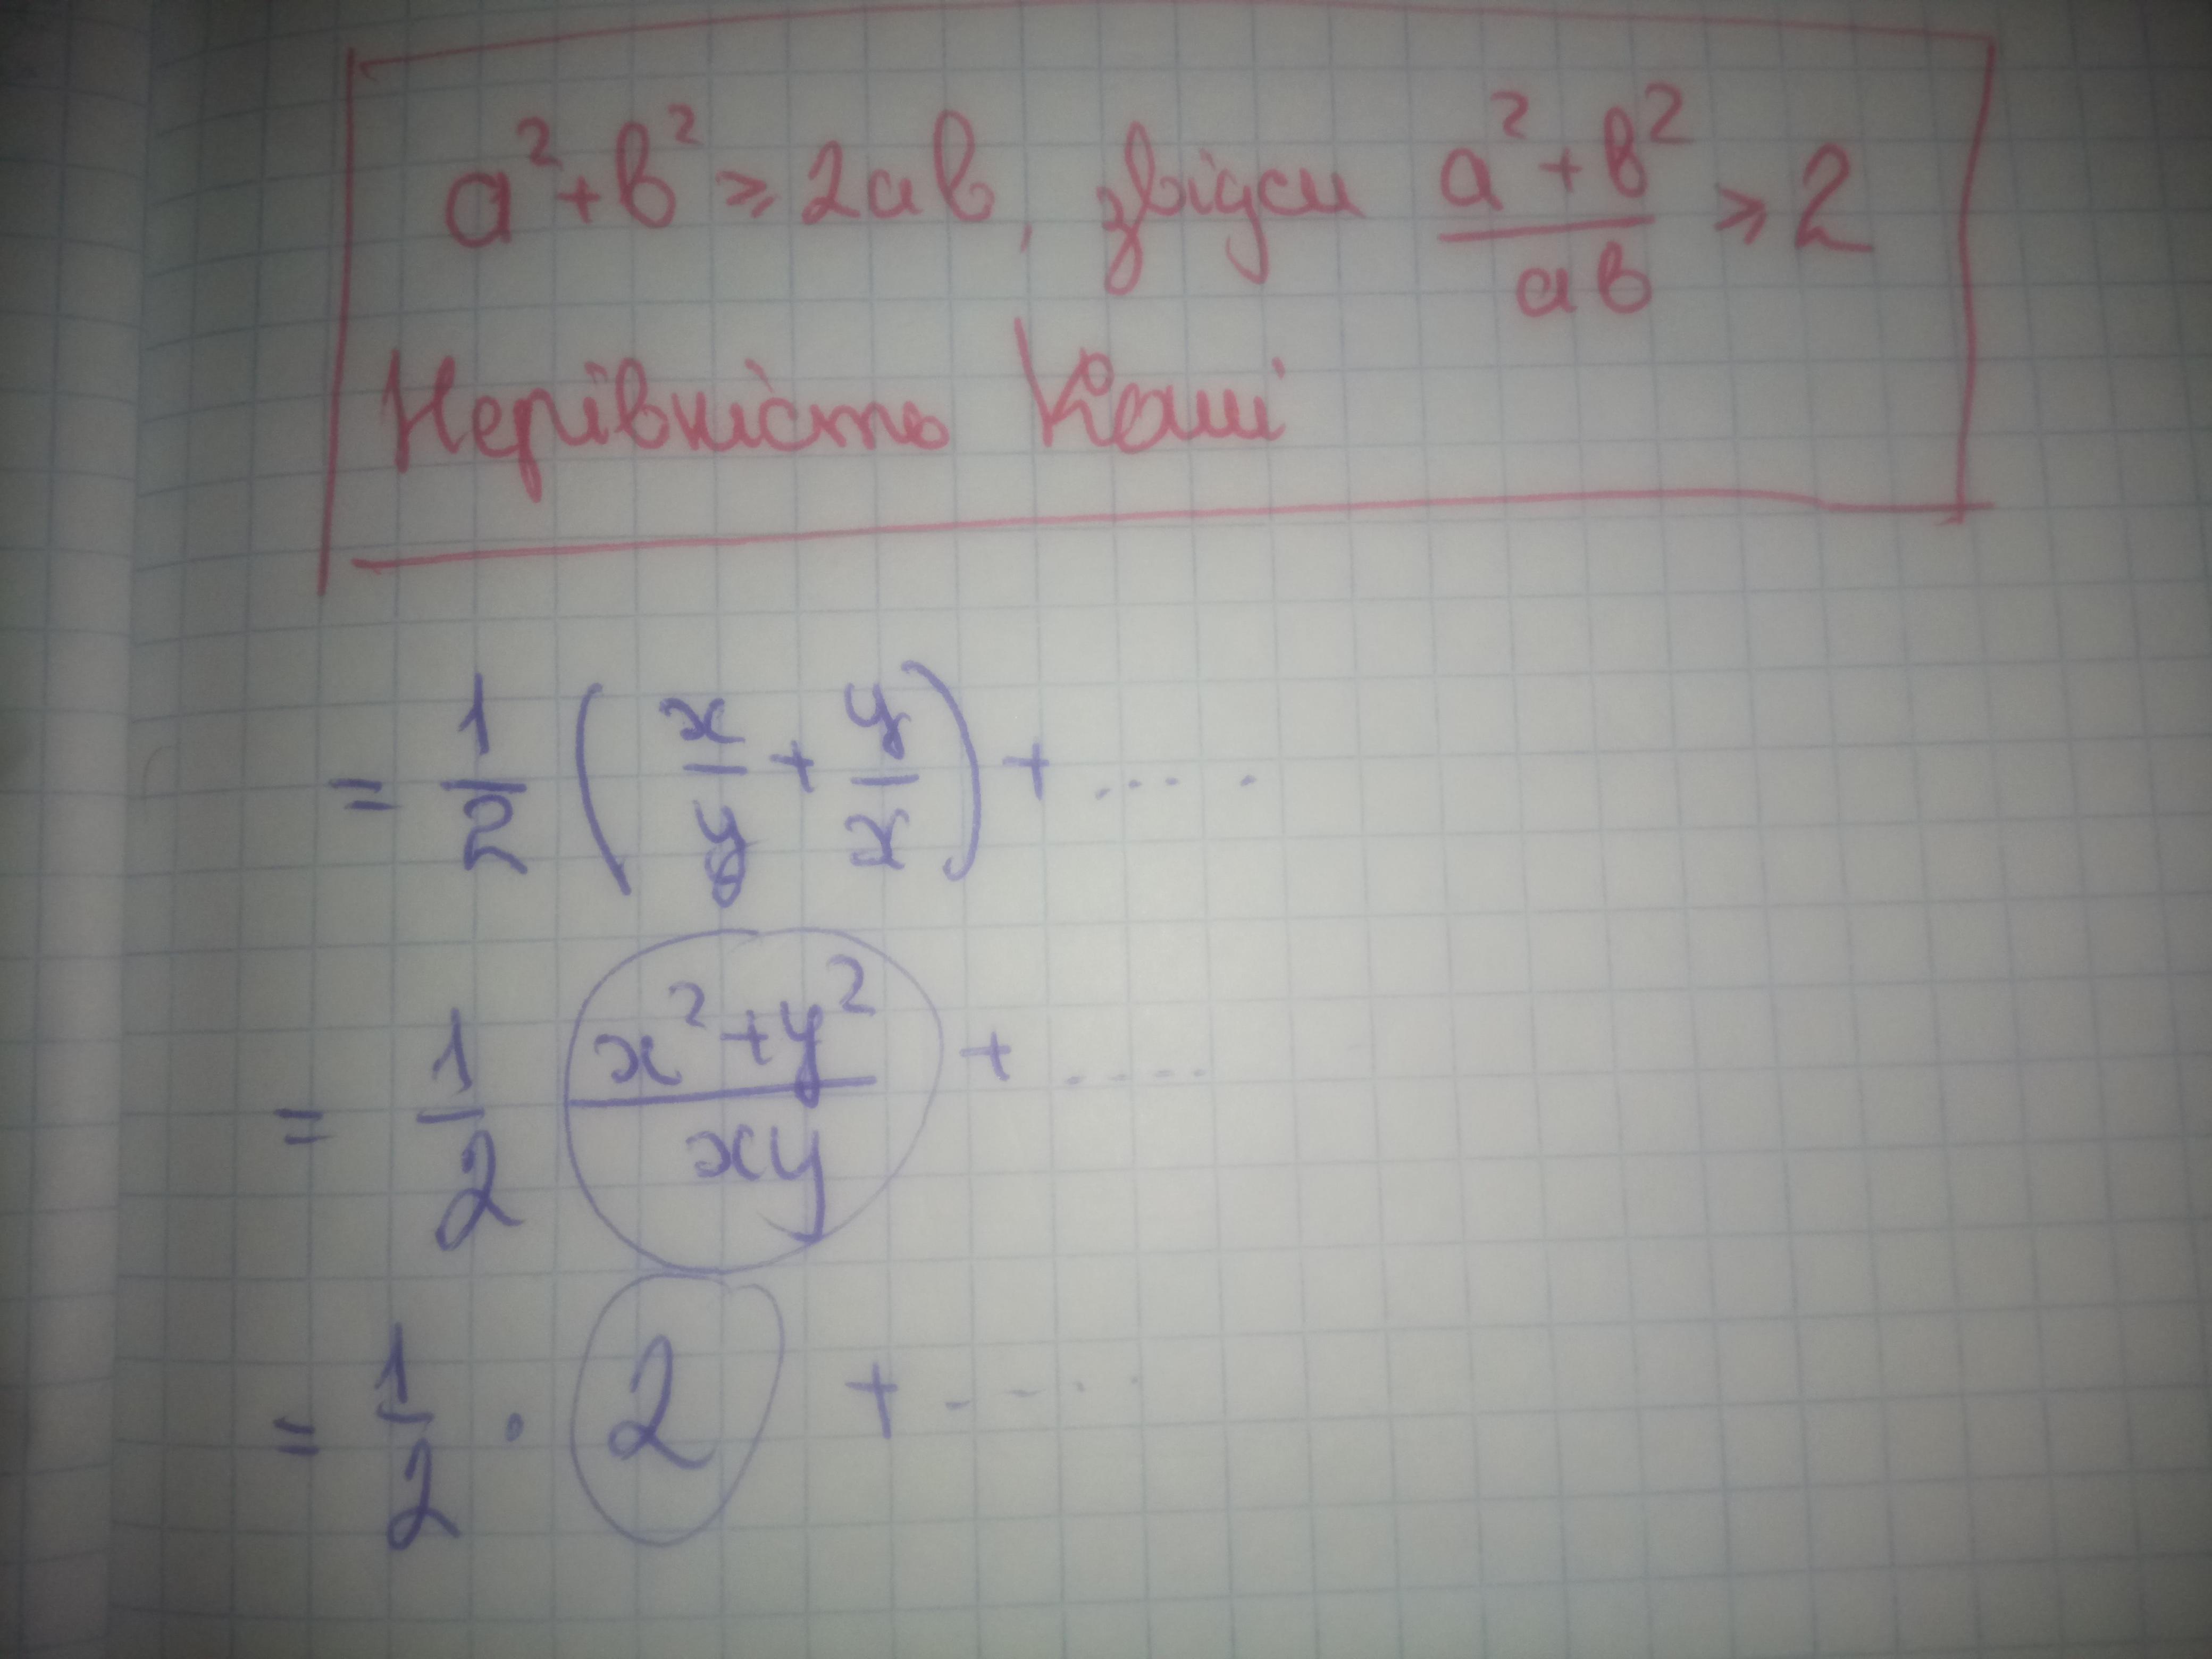 a² + b² ⩾ 2ab, звідси (a² + b²)/(ab) ⩾ 2
Нерівність Коші
= 1/2 (x/y + y/x) + .....
= 1/2 (x² + y²)/(xy) + .....
= 1/2 · 2 + .....